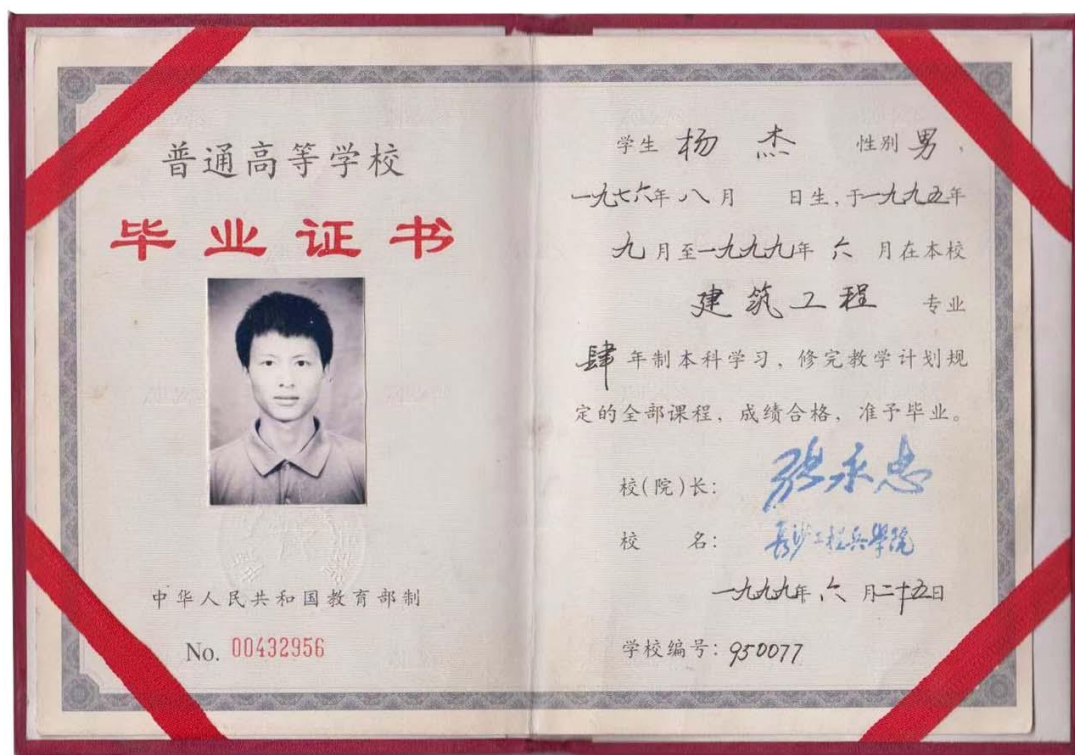 普通高等学校
毕业证书
中华人民共和国教育部制
No. 00432956
学生 杨杰 性别 男，
一九七六年八月 日生，于一九九五年
九月至一九九九年六月在本校
建筑工程 专业
肆年制本科学习，修完教学计划规
定的全部课程，成绩合格，准予毕业。
校(院)长： 张永忠
校 名： 长沙工程兵学院
一九九九年六月二十五日
学校编号：950077